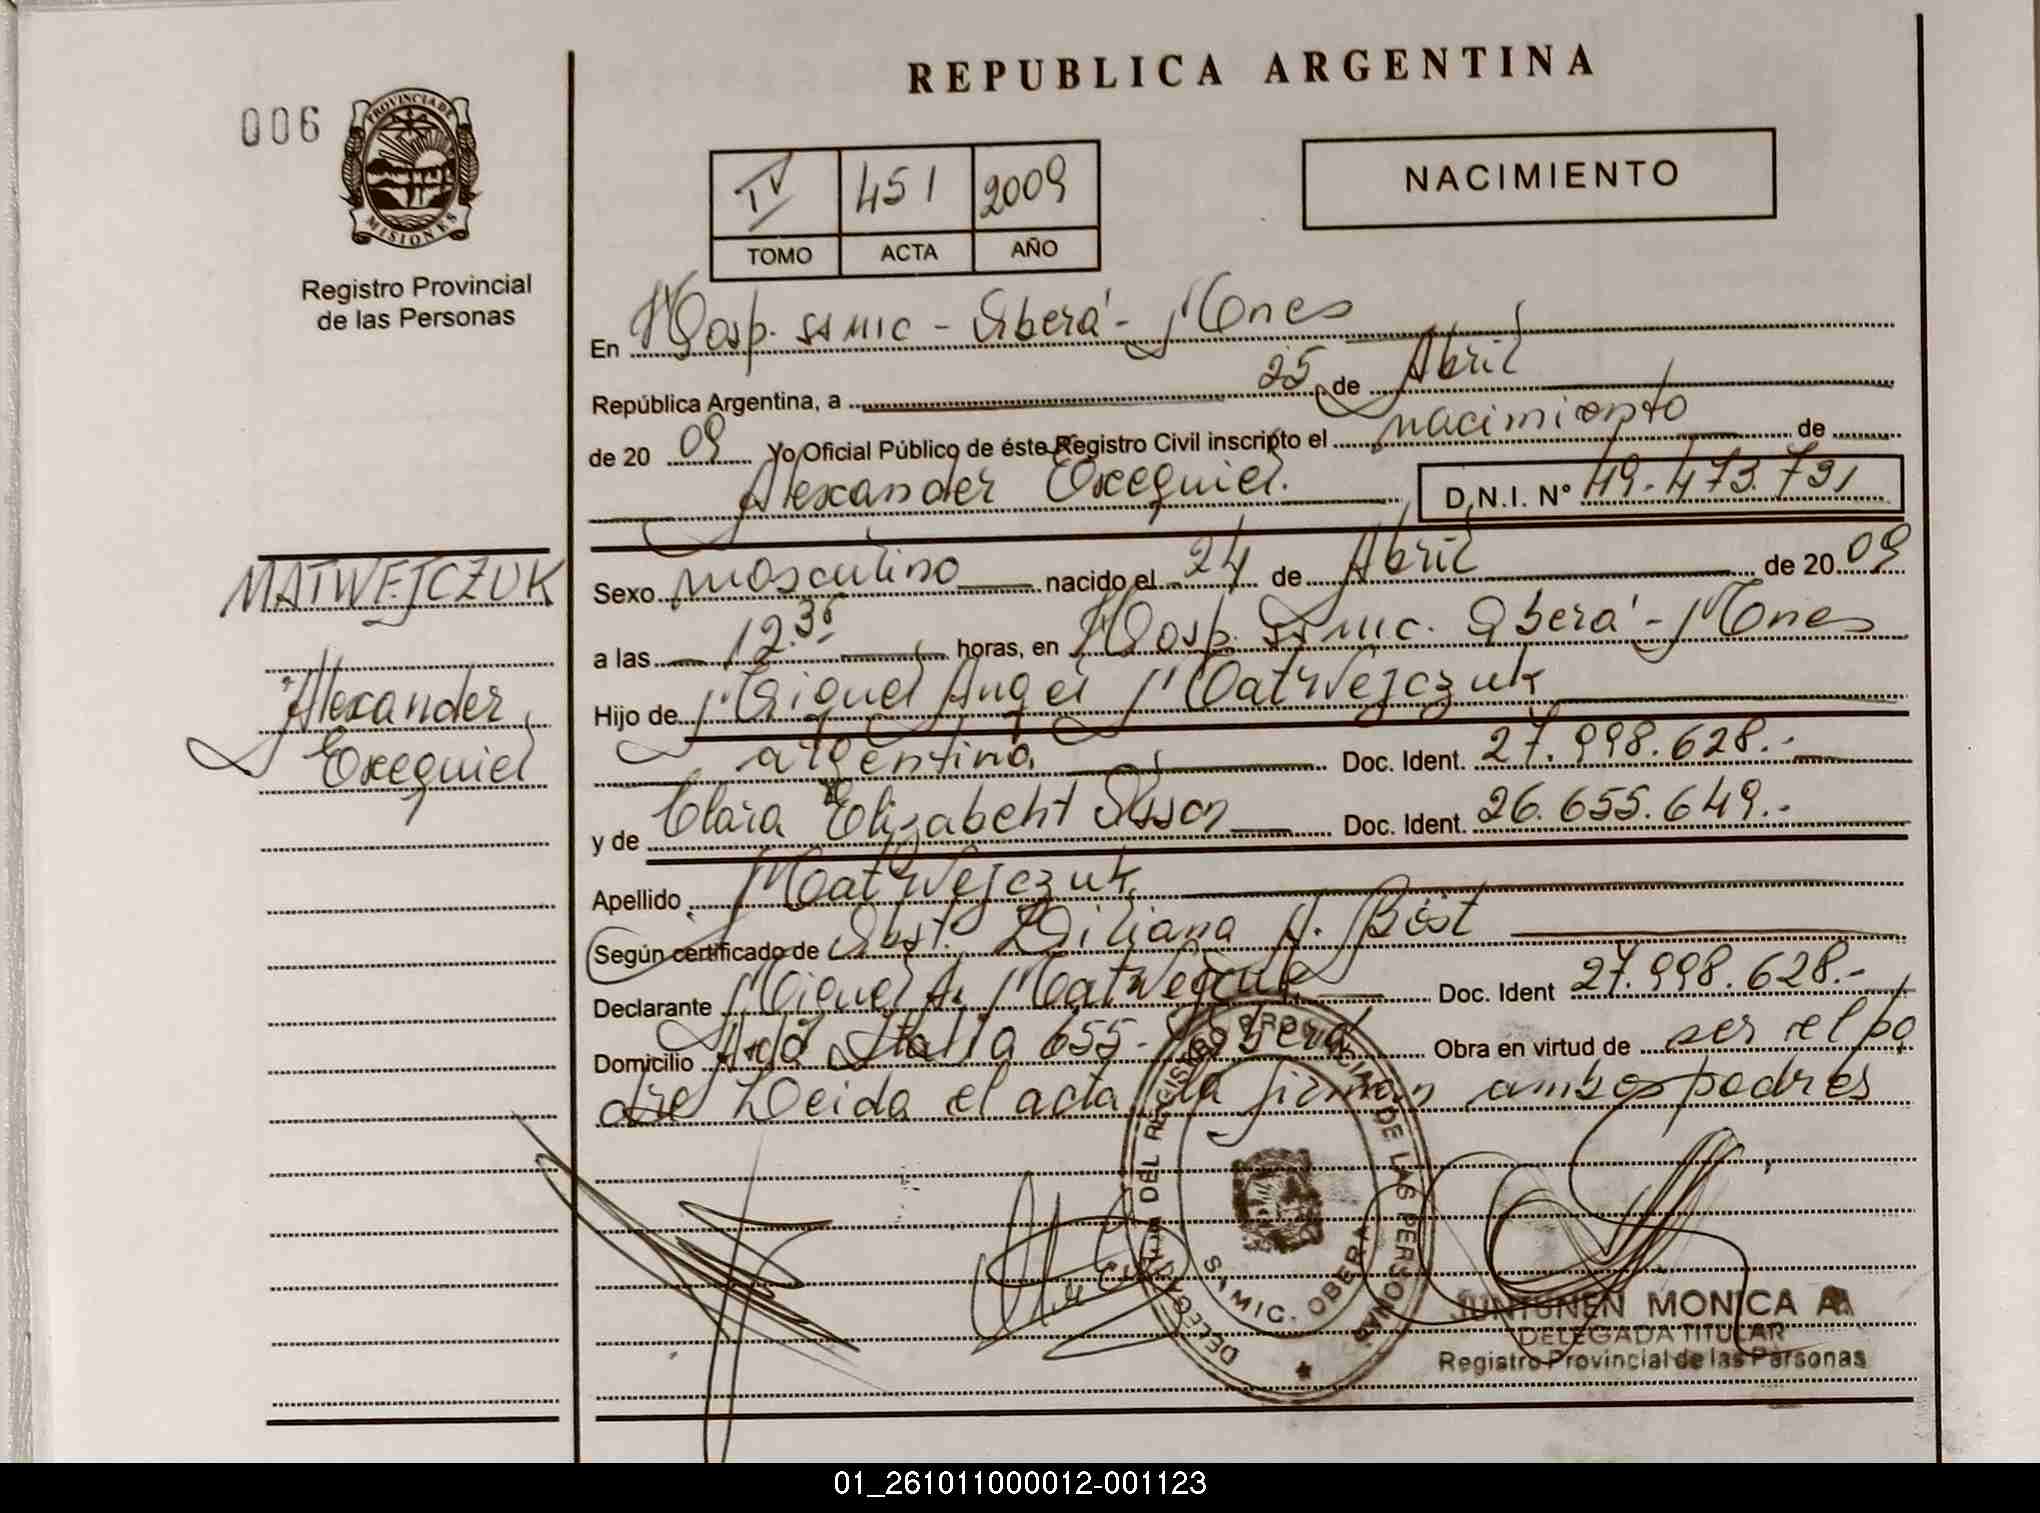 REPUBLICA ARGENTINA
006
PROVINCIA DE
MISIONES
Registro Provincial
de las Personas
NACIMIENTO
IV 451 2009
TOMO ACTA AÑO
En Hosp. SAMIC - Oberá - Mnes
República Argentina, a 25 de Abril
de 20 09 Yo Oficial Público de éste Registro Civil inscripto el nacimiento de
Alexander Exequiel. D.N.I. Nº 49.473.791
MATWEJCZUK
Alexander
Exequiel
Sexo masculino nacido el 24 de Abril de 20 09
a las 12.30 horas, en Hosp. SAMIC. Oberá - Mnes
Hijo de Miguel Angel Matwejczuk
argentina Doc. Ident. 27.998.628.-
y de Clara Elizabeht Doc. Ident. 26.655.649.-
Apellido Matwejczuk
Según certificado de Obst. Liliana A. Bost
Declarante Miguel A. Matwejczuk Doc. Ident 27.998.628.-
Domicilio Avda Italia 655- Oberá Obra en virtud de ser el pa
dre Leida el acta la firman ambos padres
DELEGACION DEL REGISTRO PROVINCIAL DE LAS PERSONAS
SAMIC. OBERA
JUNTUNEN MONICA A.
DELEGADA TITULAR
Registro Provincial de las Personas
01_261011000012-001123